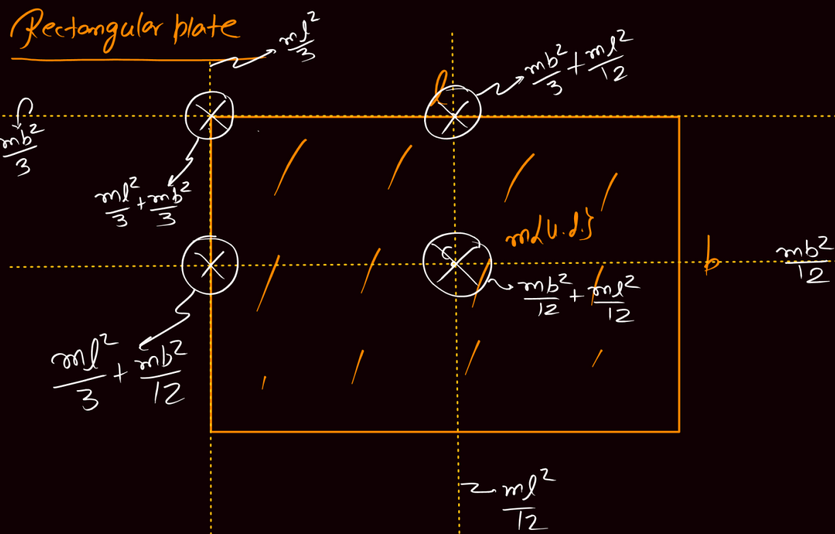 Rectangular plate
ml²/3
mb²/3 + ml²/12
l
mb²/3
ml²/3 + mb²/3
m{u.d.}
b
mb²/12
c
mb²/12 + ml²/12
ml²/3 + mb²/12
ml²/12